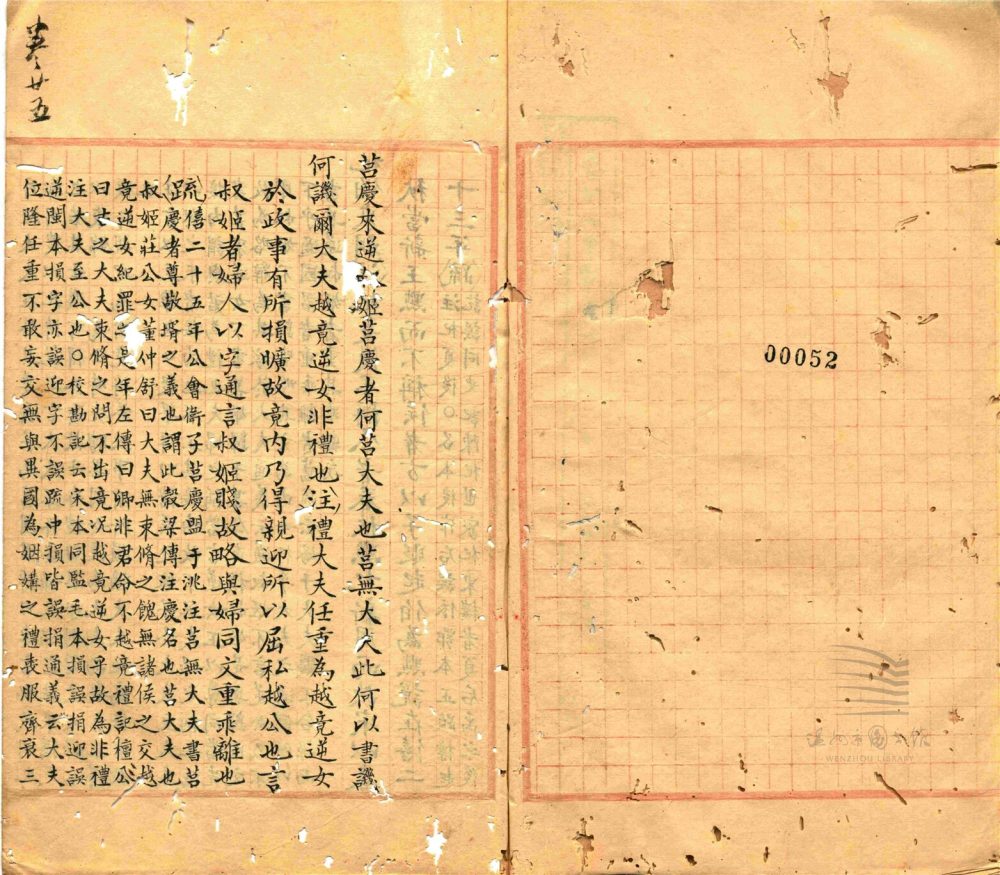 00052
WENZHOU LIBRARY
卷廿五
莒慶來逆叔姬莒慶者何莒大夫也莒無大夫此何以書譏
何譏爾大夫越竟逆女非禮也注禮大夫任重為越竟逆女
於政事有所損曠故竟內乃得親迎所以屈私越公也言
叔姬者婦人以字通言叔姬賤故略與婦同文重乖離也
疏僖二十五年公會衛子莒慶盟于洮注莒無大夫書莒
慶者尊敬壻之義也謂此穀梁傳注慶名也莒大夫也
叔姬莊公女董仲舒曰大夫無束脩之餽無諸侯之交越
竟逆女紀罪之是年左傳曰卿非君命不越竟禮記檀公
曰古之大夫束脩之問不出竟況越竟逆女乎故為非禮
注大夫至公也〇校勘記云宋本同監毛本損誤捐迎誤
逆閩本損字亦誤迎字不誤疏中損皆誤捐通義云大夫
位隆任重不敢妄交無與異國為姻媾之禮喪服齊衰三